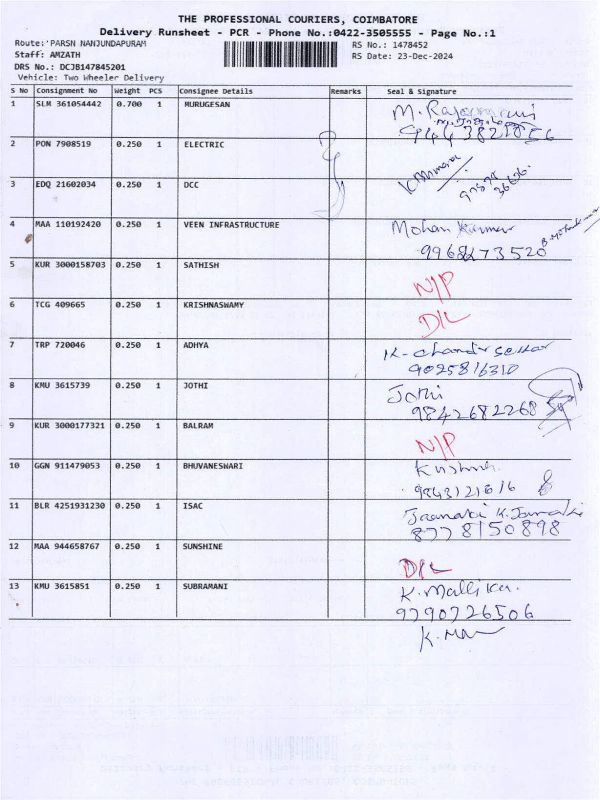 THE PROFESSIONAL COURIERS, COIMBATORE
Delivery Runsheet - PCR - Phone No.:0422-3505555 - Page No.:1
Route:'PARSN NANJUNDAPURAM
RS No.: 1478452
Staff: AMZATH
RS Date: 23-Dec-2024
DRS No.: DCJB147845201
Vehicle: Two Wheeler Delivery
S No Consignment No Weight PCS Consignee Details Remarks Seal & Signature
1 SLM 361054442 0.700 1 MURUGESAN
2 PON 7908519 0.250 1 ELECTRIC
3 EDQ 21602034 0.250 1 DCC
4 MAA 110192420 0.250 1 VEEN INFRASTRUCTURE Mohan Kumar
5 KUR 3000158703 0.250 1 SATHISH N/P
6 TCG 409665 0.250 1 KRISHNASWAMY D/L
7 TRP 720046 0.250 1 ADHYA K-chandrsekar
9025816310
8 KMU 3615739 0.250 1 JOTHI Jothi
9842682268
9 KUR 3000177321 0.250 1 BALRAM N/P
10 GGN 911479053 0.250 1 BHUVANESWARI Krishna
11 BLR 4251931230 0.250 1 ISAC
8778150898
12 MAA 944658767 0.250 1 SUNSHINE D/L
13 KMU 3615851 0.250 1 SUBRAMANI K. Mallika
9790726506